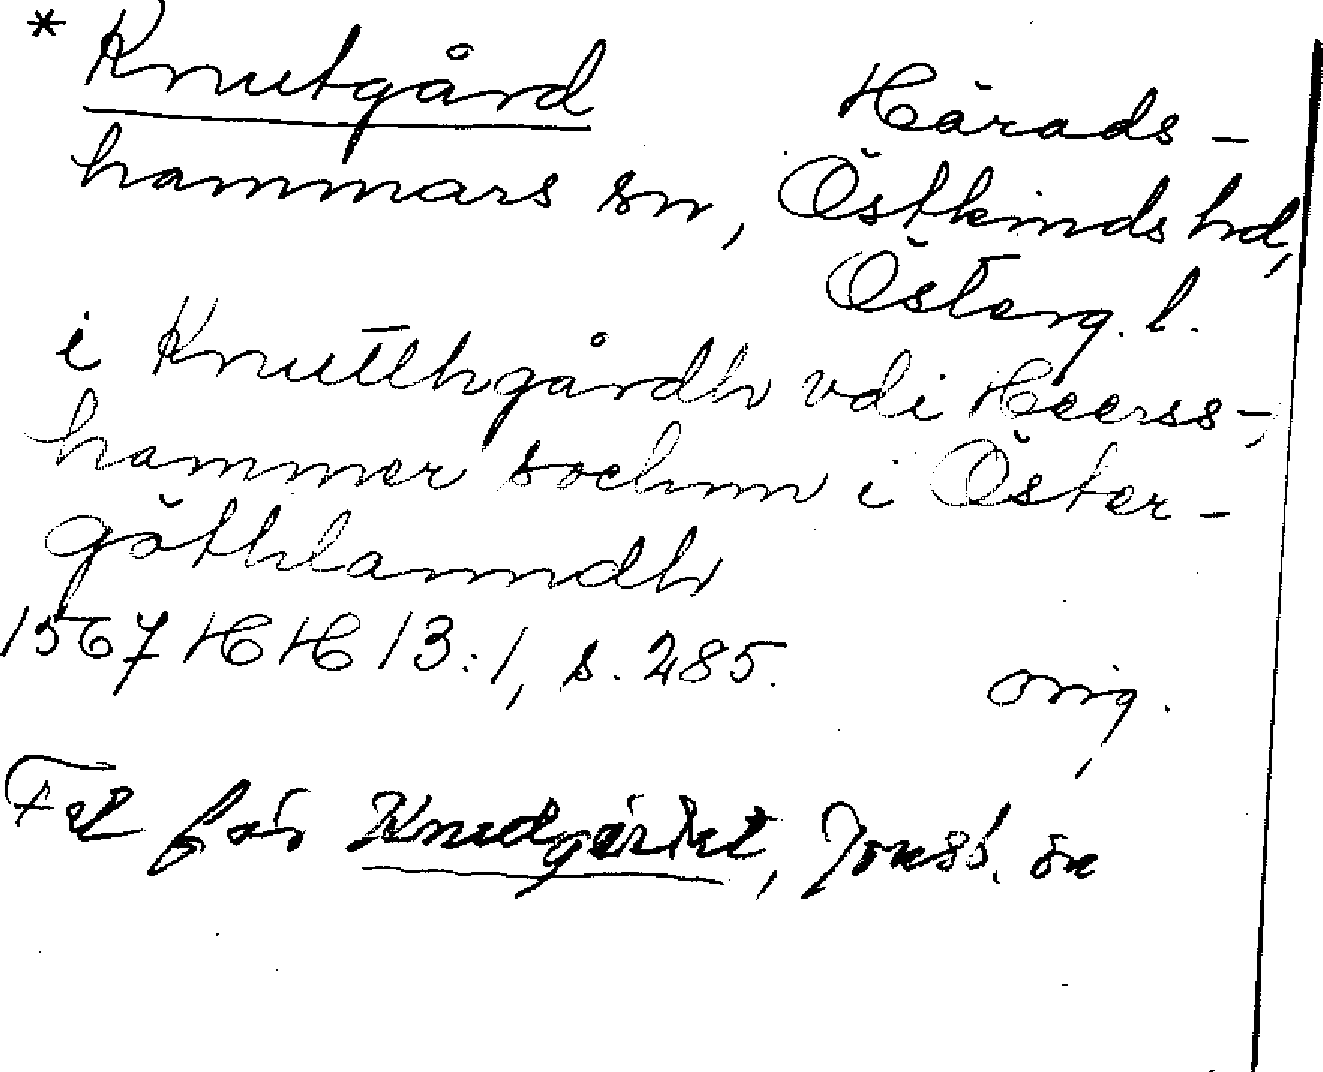 * Knutgård Härads-
hammars sn, Östkinds hd,
Österg. l.
i Knutthgårdh vdi Heerss-
hammer sochnn i Öster-
göthlanndh
1567 HH 13:1, s. 285.
orig.
Fel för Knutgärdet, Jonsb. sn